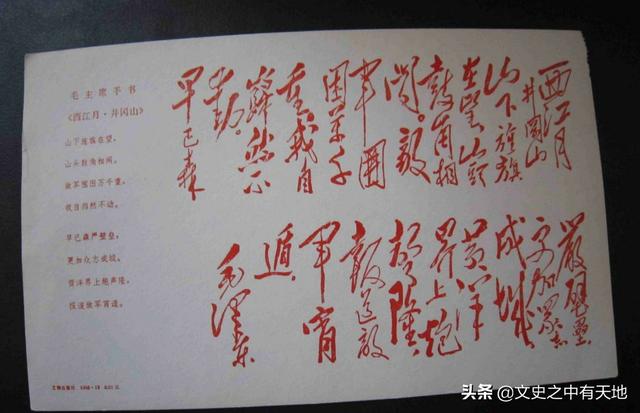 毛主席手书
《西江月·井冈山》
山下旌旗在望，
山头鼓角相闻。
敌军围困万千重，
我自岿然不动。
早已森严壁垒，
更加众志成城。
黄洋界上炮声隆，
报道敌军宵遁。
西江月
井冈山
山下旌旗
在望，山头
鼓角相
闻。敌
军围
困万千
重，我自
岿然不
动。
早已森
严壁垒，
更加众志
成城。
黄洋
界上炮
声隆，
报道敌
军宵
遁。
毛泽东
文物出版社
头条 @文史之中有天地